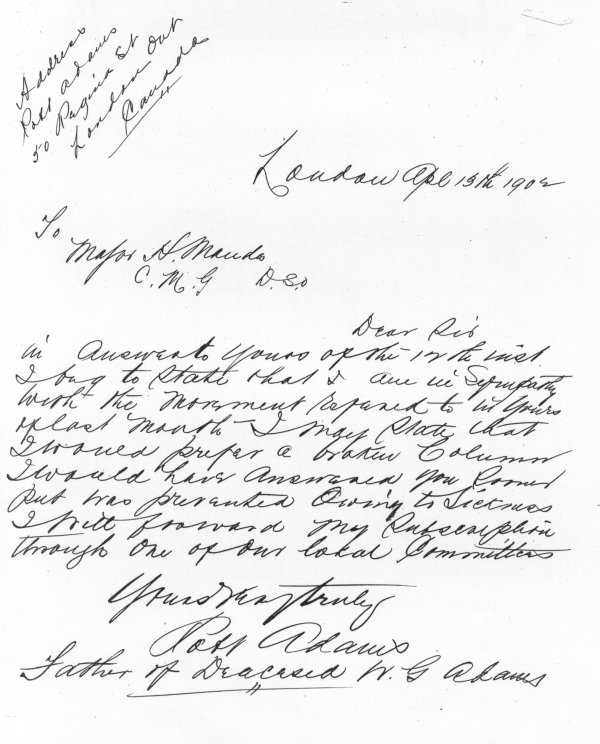 Address
Robt Adams
50 Regina St Ont
London
Canada
London Apl 13th 1902
To
Major H. Maude
C. M. G D.S.O
Dear Sir
in Answer to Yours of the 12th inst
I beg to State that I am in Sympathy
with the Movment refered to in Yours
of last Month I may State that
I would prefer a broken Column
I would have Answered you Sooner
but was prevented Owing to Sickness
I Will forward my Subscription
through One of Our local Committees
Yours Very truly
Robt Adams
Father of Deacased W. G Adams